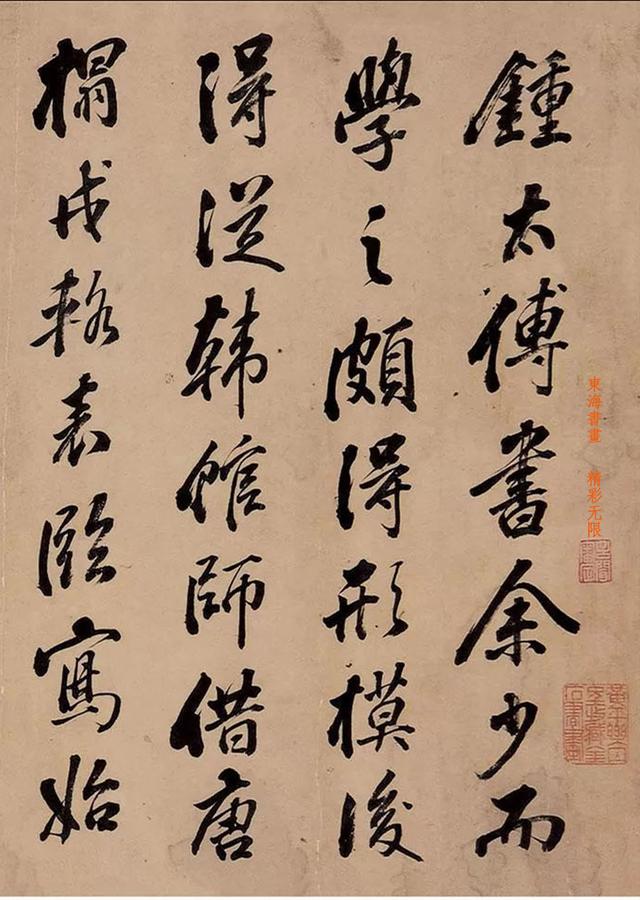 鍾太傅書余少而
學之頗得形模後
得從韩館師借唐
搨戎輅表臨寫始
東海書畫 精彩无限